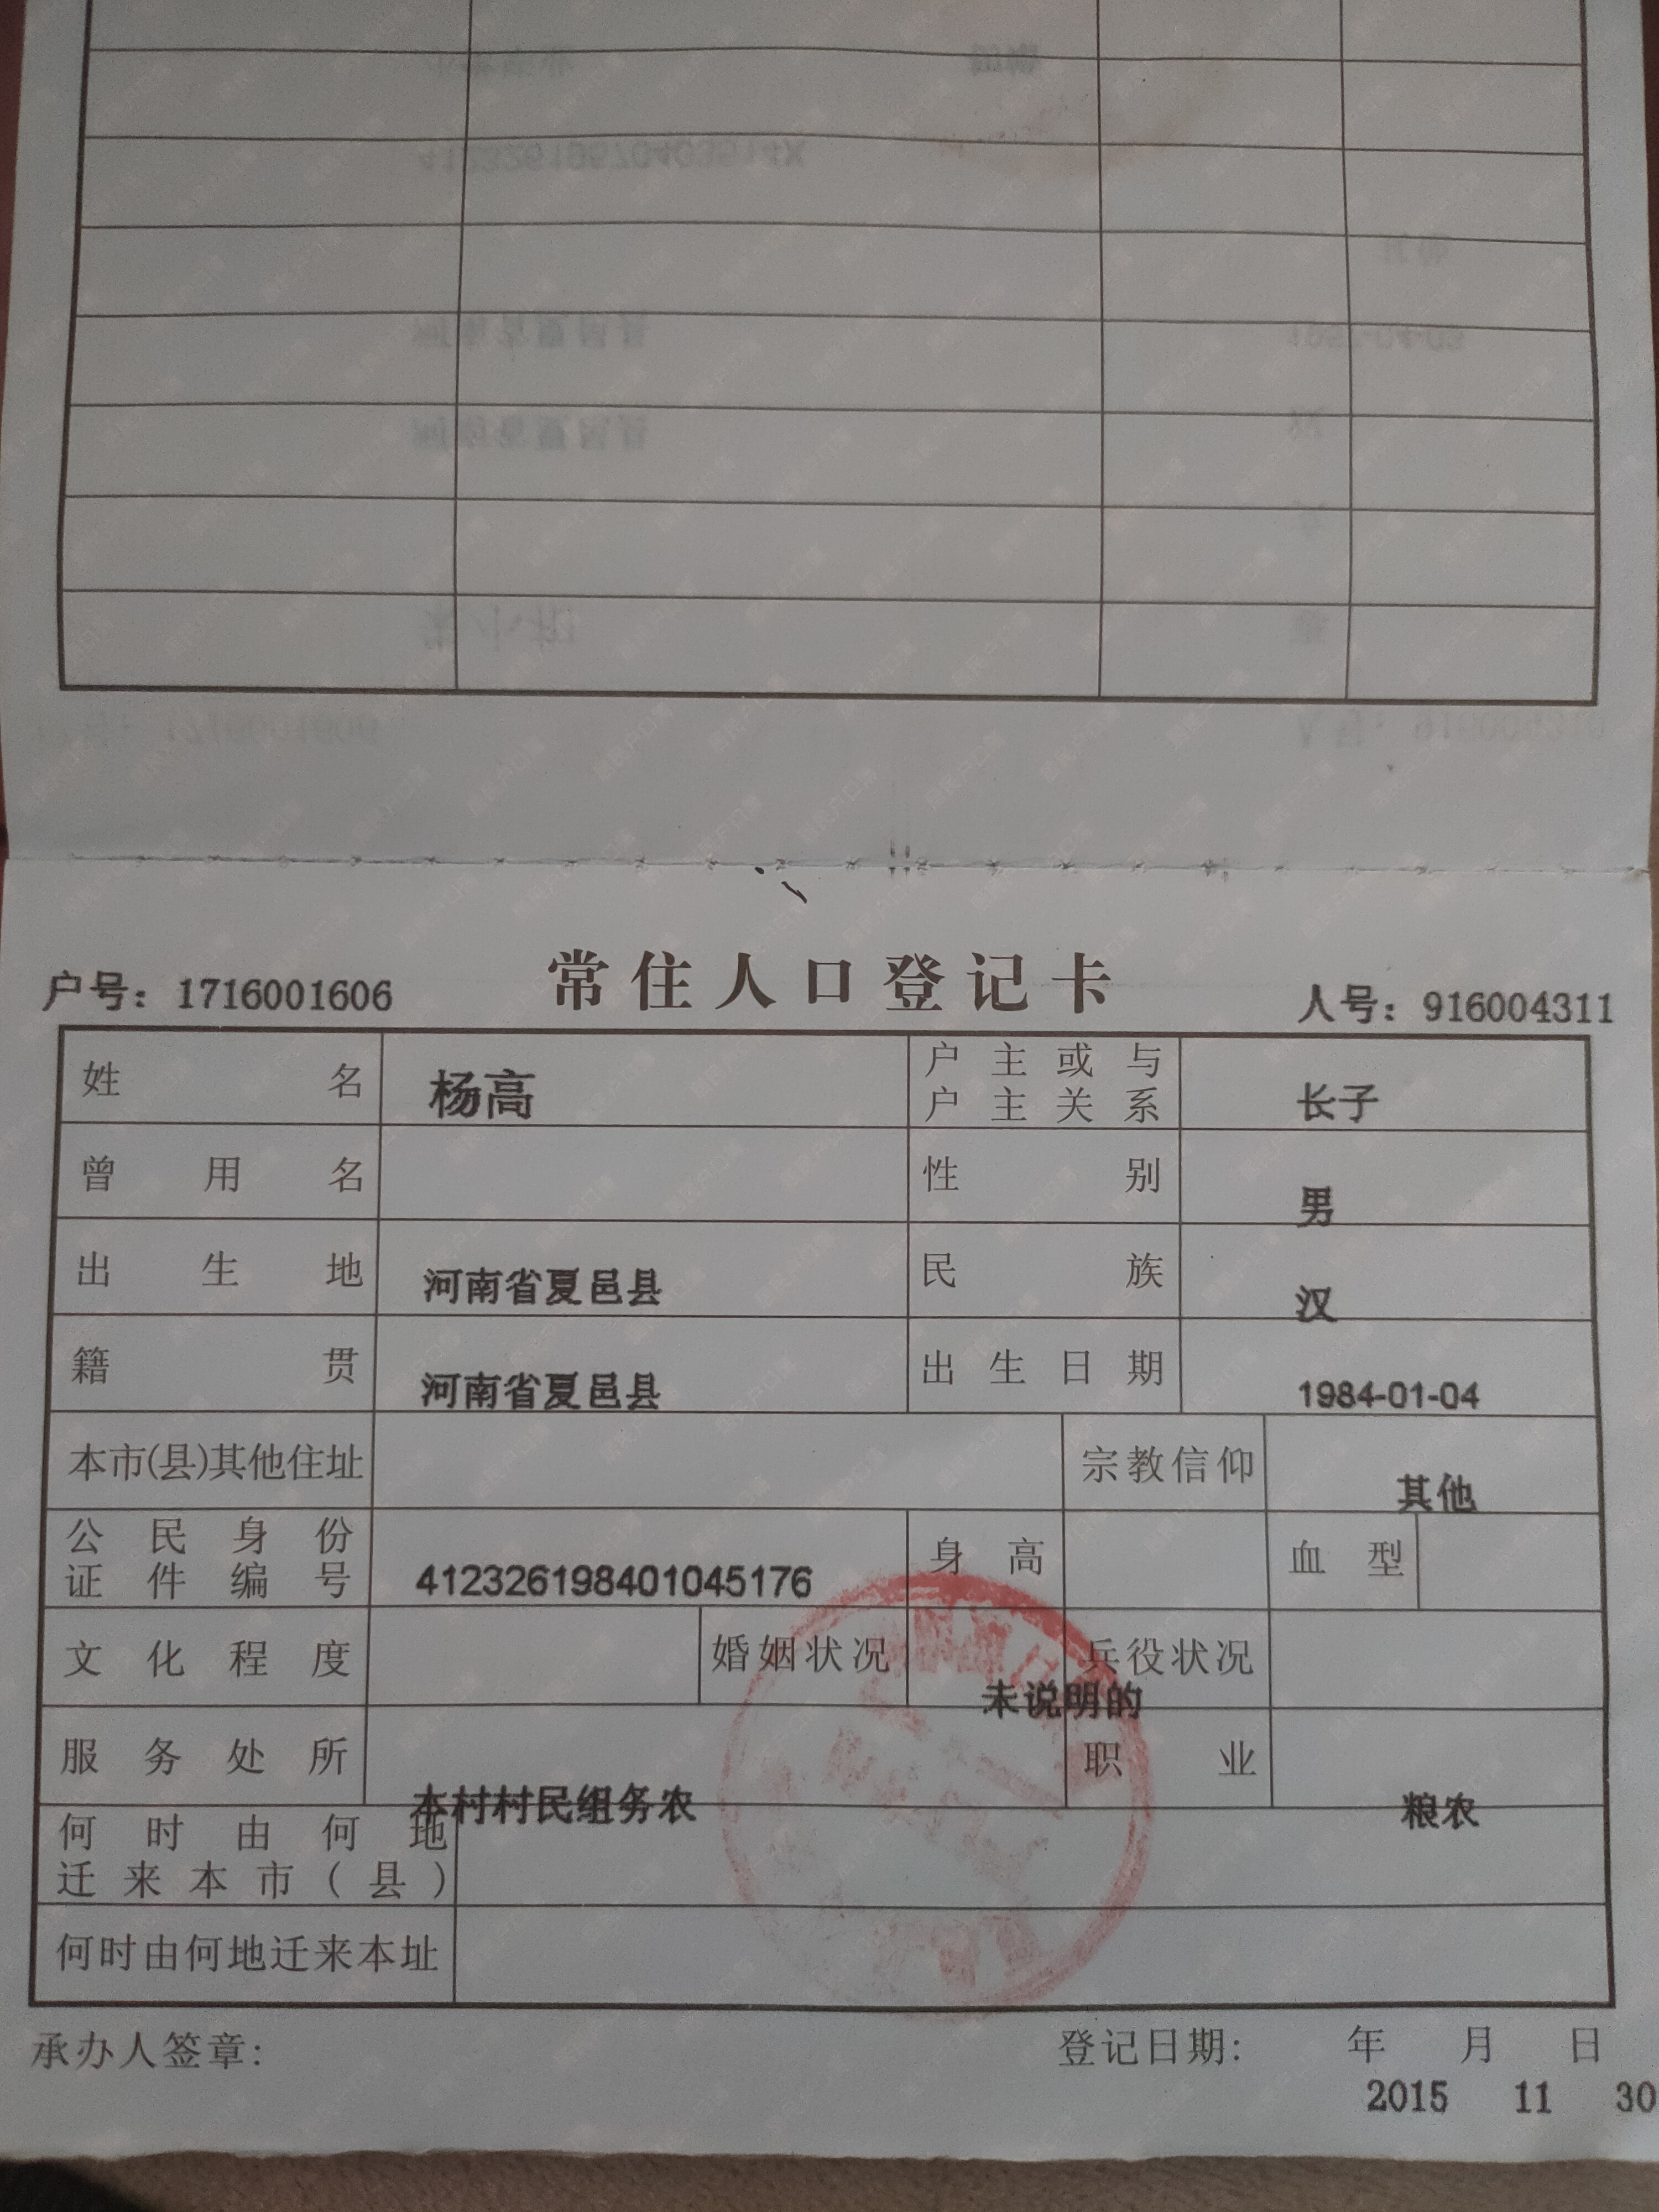 常住人口登记卡
户号：1716001606
人号：916004311
姓名 杨高 户主或与户主关系 长子
曾用名 性别 男
出生地 河南省夏邑县 民族 汉
籍贯 河南省夏邑县 出生日期 1984-01-04
本市(县)其他住址 宗教信仰 其他
公民身份证件编号 412326198401045176 身高 血型
文化程度 婚姻状况 未说明的 兵役状况
服务处所 本村村民组务农 职业 粮农
何时由何地迁来本市(县)
何时由何地迁来本址
承办人签章: 登记日期: 年 月 日
2015 11 30